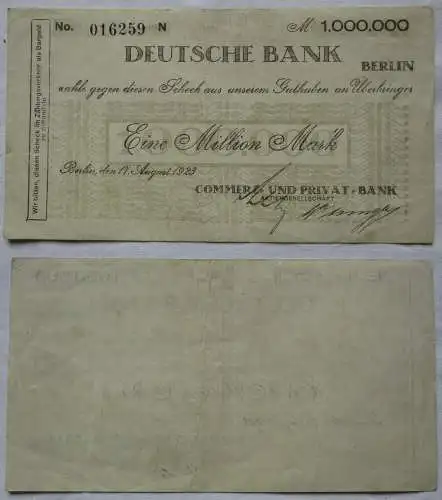 No. 016259 N
M 1.000,000
DEUTSCHE BANK
BERLIN
zahle gegen diesen Scheck aus unserem Guthaben an Überbringer
Eine Million Mark
Berlin, den 17. August 1923
COMMERZ- UND PRIVAT-BANK
AKTIENGESELLSCHAFT
Wir bitten, diesen Scheck im Zahlungsverkehr als Bargeld